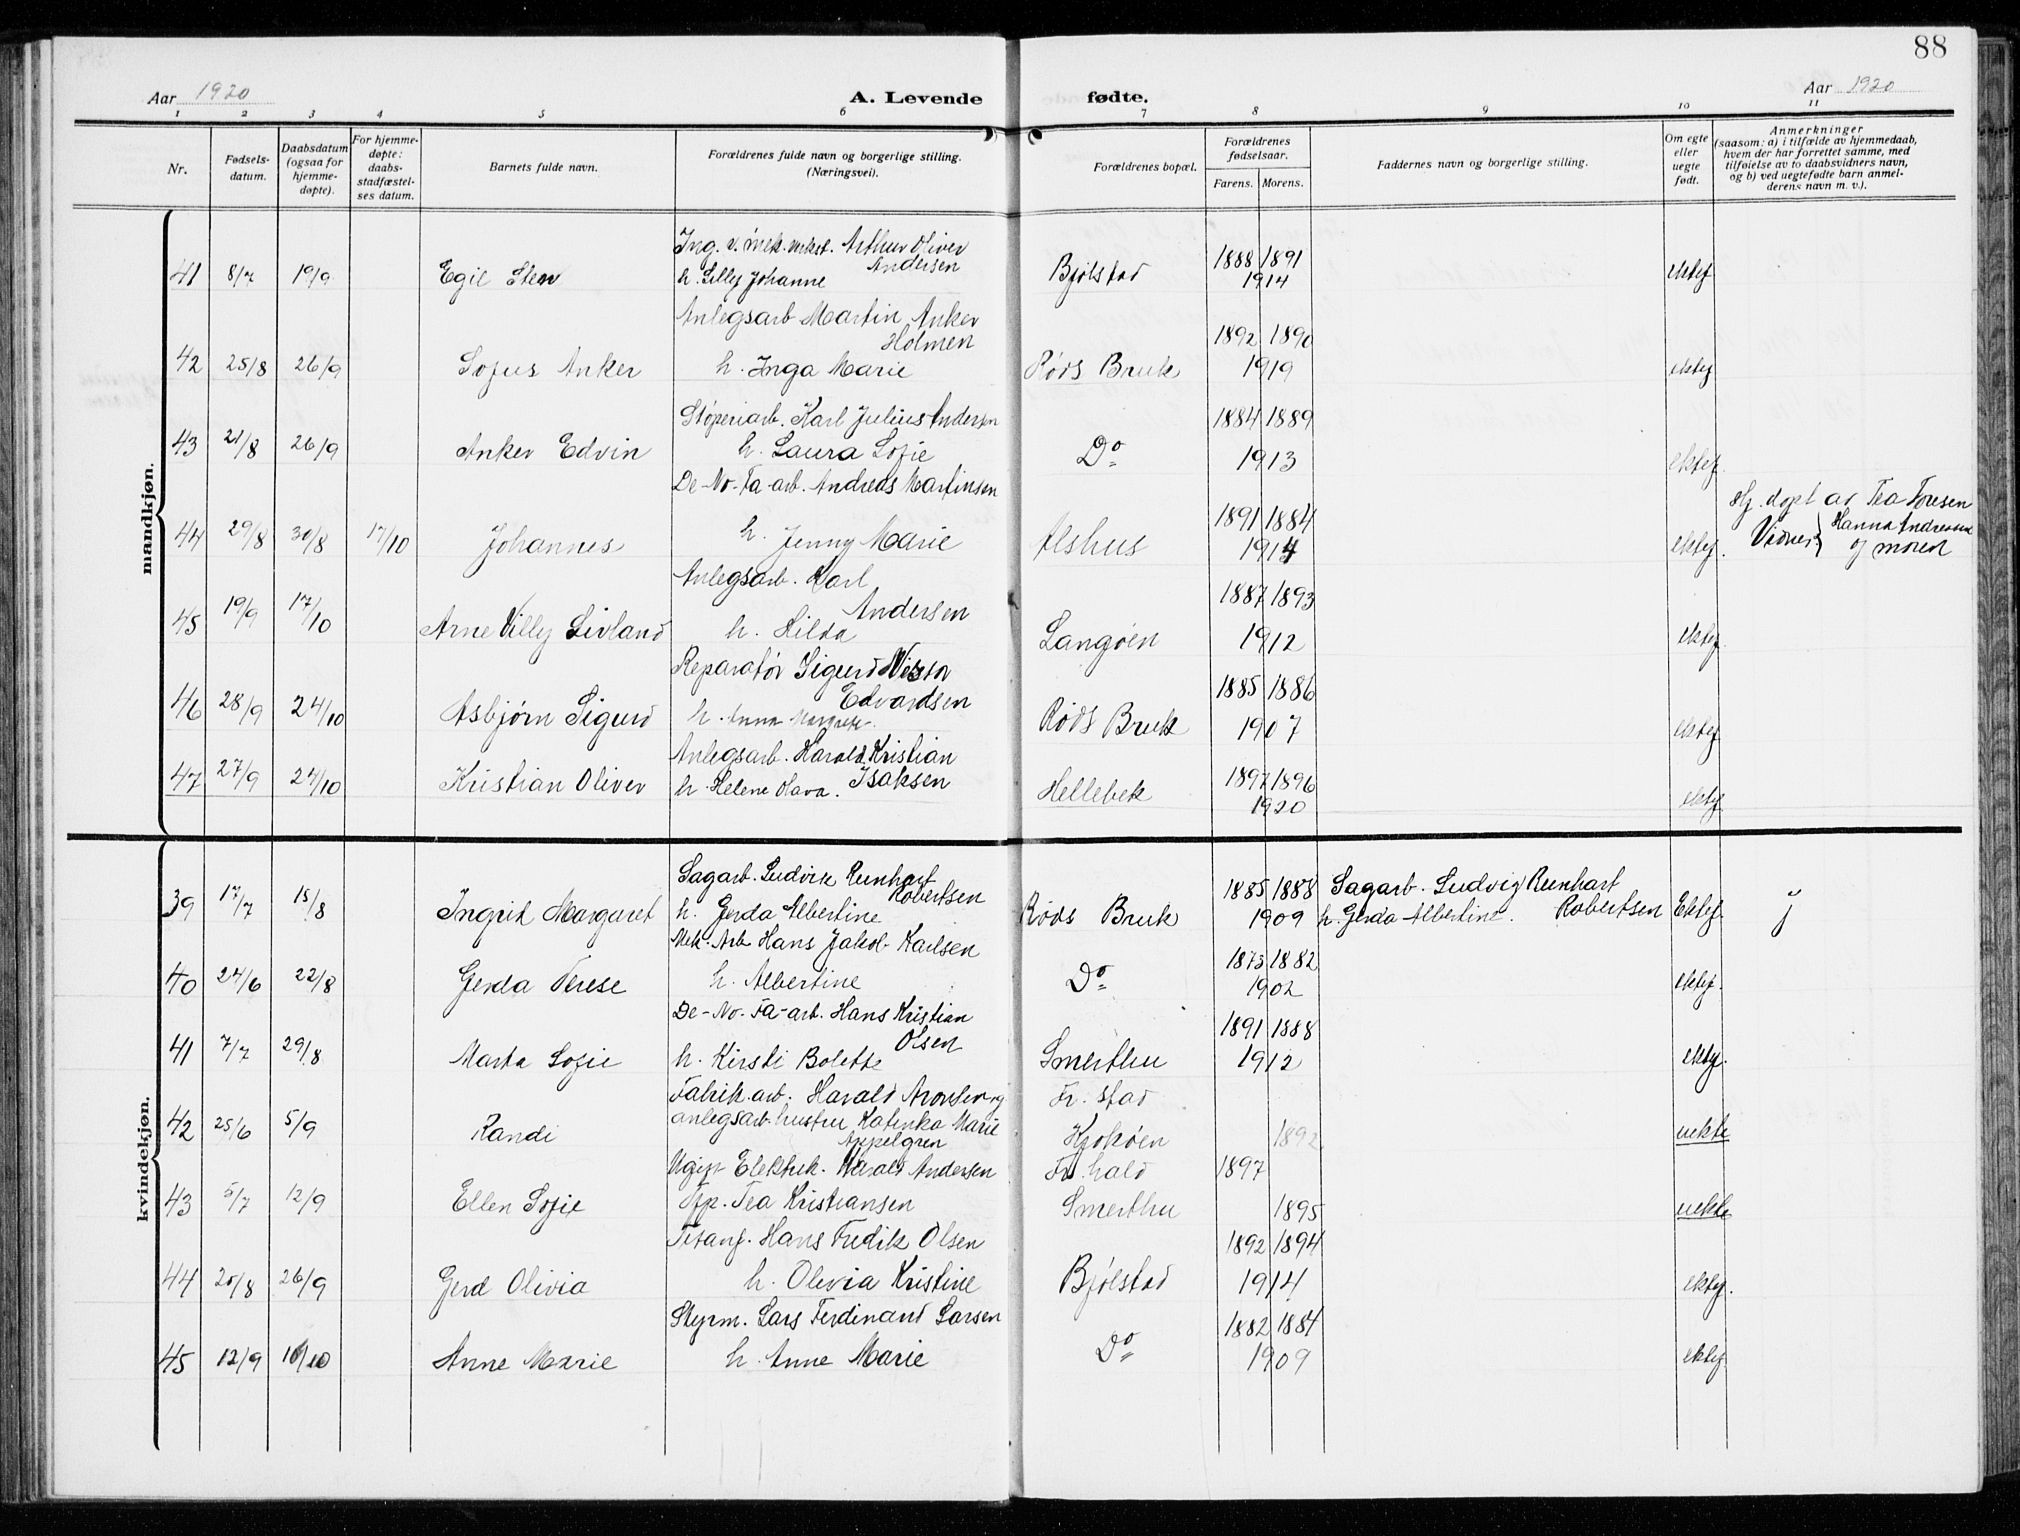 88
Aar 1920 A. Levende fødte. Aar 1920
1 2 3 4 5 6 7 8 9 10 11
Nr.
Fødsels-
datum.
Daabsdatum
(ogsaa for
hjemme-
døpte).
For hjemme-
døpte:
daabs-
stadfæstel-
ses datum.
Barnets fulde navn.
Forældrenes fulde navn og borgerlige stilling.
(Næringsvei).
Forældrenes bopæl.
Forældrenes
fødselsaar.
Farens. Morens.
Faddernes navn og borgerlige stilling.
Om egte
eller
uegte
født.
Anmerkninger
(saasom: a) i tilfælde av hjemmedaab,
hvem der har forrettet samme, med
tilføielse av to daabsvidners navn,
og b) ved uegtefødte barn anmel-
derens navn m. v.).
mandkjøn.
Ing. v. mek. verkst. Arthur Oliver
Andersen 1888 1891
41 8/7 19/9 Egil Sten h. Lilly Johanne Bjølstad 1914 ektef
Anlegsarb Martin Anker
Holmen 1892 1890
42 25/8 26/9 Sofus Anker h. Inga Marie Røds Bruk 1919 ektef
Støperiarb. Karl Julius Andersen 1884 1889
43 21/8 26/9 Anker Edvin h. Laura Sofie Do 1913 ektef.
De-No-Fa-arb. Andreas Martinsen 1891 1884 Hj. døpt av Tea Foresen
44 29/8 30/8 17/10 Johannes h. Jenny Marie Alshus 1914 ektef. Vidner} Hanna Andresen
og moren
Anlegsarb. Karl
Andersen 1887 1893
45 19/9 17/10 Arne Villy Livland h. Hilda Langøen 1912 ektef.
Reparatør Sigurd
Edvardsen 1885 1886
46 28/9 24/10 Asbjørn Sigurd h. Anna Røds Bruk 1907 ektef
Anlegsarb. Harald Kristian
Isaksen 1897 1896
47 27/9 24/10 Kristian Oliver h. Helene Hellebek 1920 ektef
kvindekjøn.
Sagarb. Ludvik Reinhart
Robertsen 1885 1888 Sagarb. Ludvig Reinhart
39 17/7 15/8 Ingrid Margaret h. Gerda Albertine Røds Bruk 1909 h. Gerda Albertine. Robertsen Ektef. j
Mek. Arb Hans Jakob Karlsen 1873 1882
40 24/6 22/8 Gerda Terese h. Albertine Do 1902 ektef.
De-No-Fa-arb. Hans Kristian
Olsen 1891 1888
41 7/7 29/8 Marta Sofie h. Kirsti Bolette Smerthu 1912 ektef.
Fabrik.arb. Harald Fr. stad
anlegsarb. hustru Katinka Marie
42 25/6 5/9 Randi Appelgren Kjøkøen 1892 uekte
Ugift Elektrik. Harald Andersen Fr. hald 1897
43 5/7 12/9 Ellen Sofie Tea Kristiansen Smerthu 1895 uekte
Hans Fredik Olsen 1892 1894
44 20/8 26/9 Gerd Olivia h. Olivia Kristine Bjølstad 1914 ektef.
Styrm. Lars Ferdinand Larsen 1882 1884
45 12/9 10/10 Anne Marie h. Anne Marie Do 1909 ektef